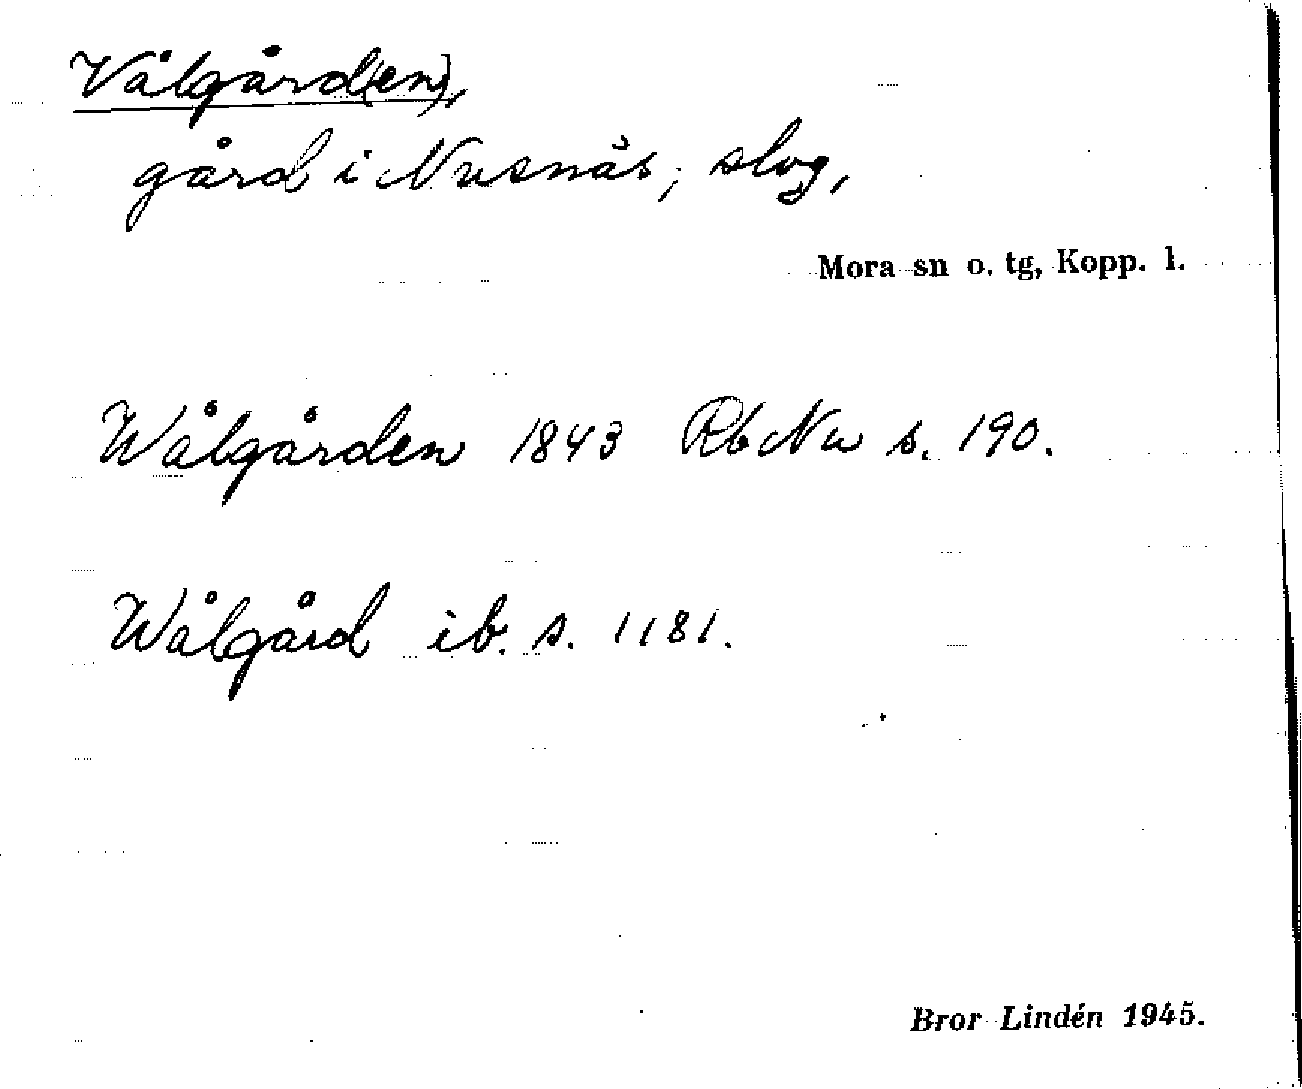 Vålgård(en),
gård i Nusnäs, slog,
Mora sn o. tg, Kopp. l.
Wålgården 1843 Rb Nu s. 190.
Wålgård ib. s. 1181.
Bror Lindén 1945.